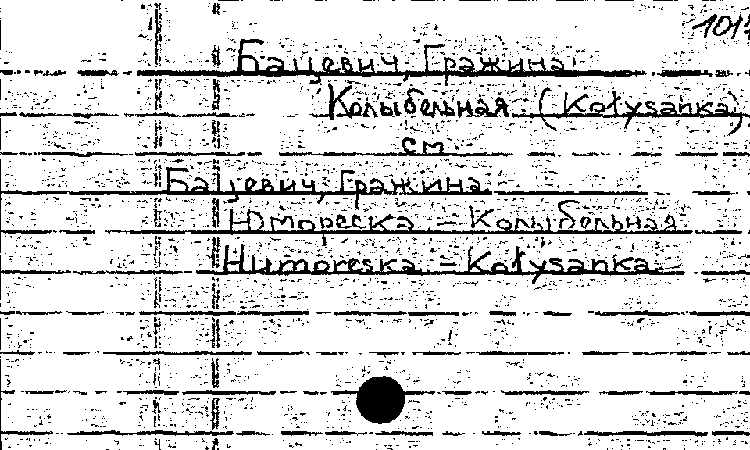 Бацевич, Гражина
Колыбельная (Kołysanka)
см.
Бацевич, Гражина
Юмореска - Колыбельная
Humoreska - Kołysanka